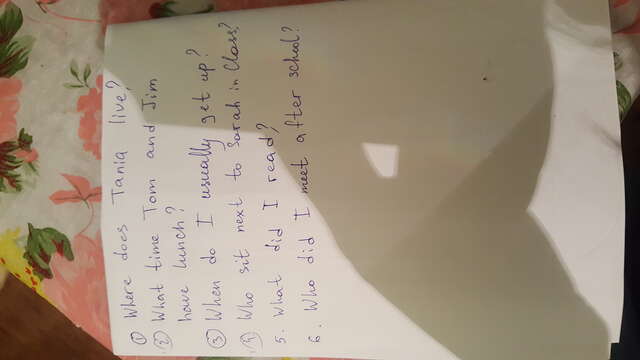 ① Where does Tania live?
② What time Tom and Jim
have lunch?
③ When do I usually get up?
④ Who sit next to Sarah in Class?
5. What did I read?
6. Who did I meet after school?